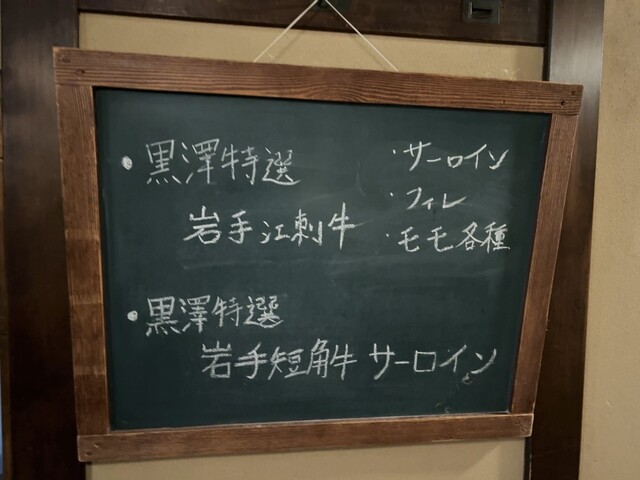 ・黒澤特選
岩手江刺牛
・サーロイン
・フィレ
・モモ各種
・黒澤特選
岩手短角牛 サーロイン